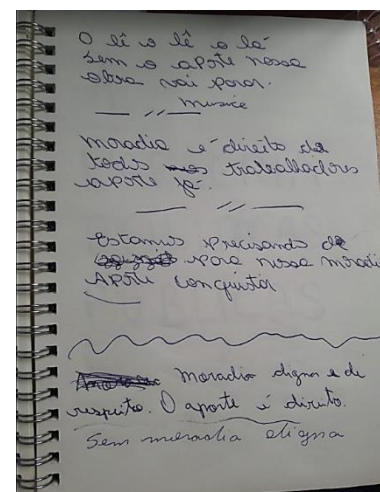 O lê o lê o lá
sem o aporte nossa
obra vai parar.
musice
moradia é direito de
todos trabalhadores
aporte já.
Estamos precisando de
para nossa moradi
Aporte conquistar
moradia digna e de
respeito. O aporte é direito.
Sem moradia digna